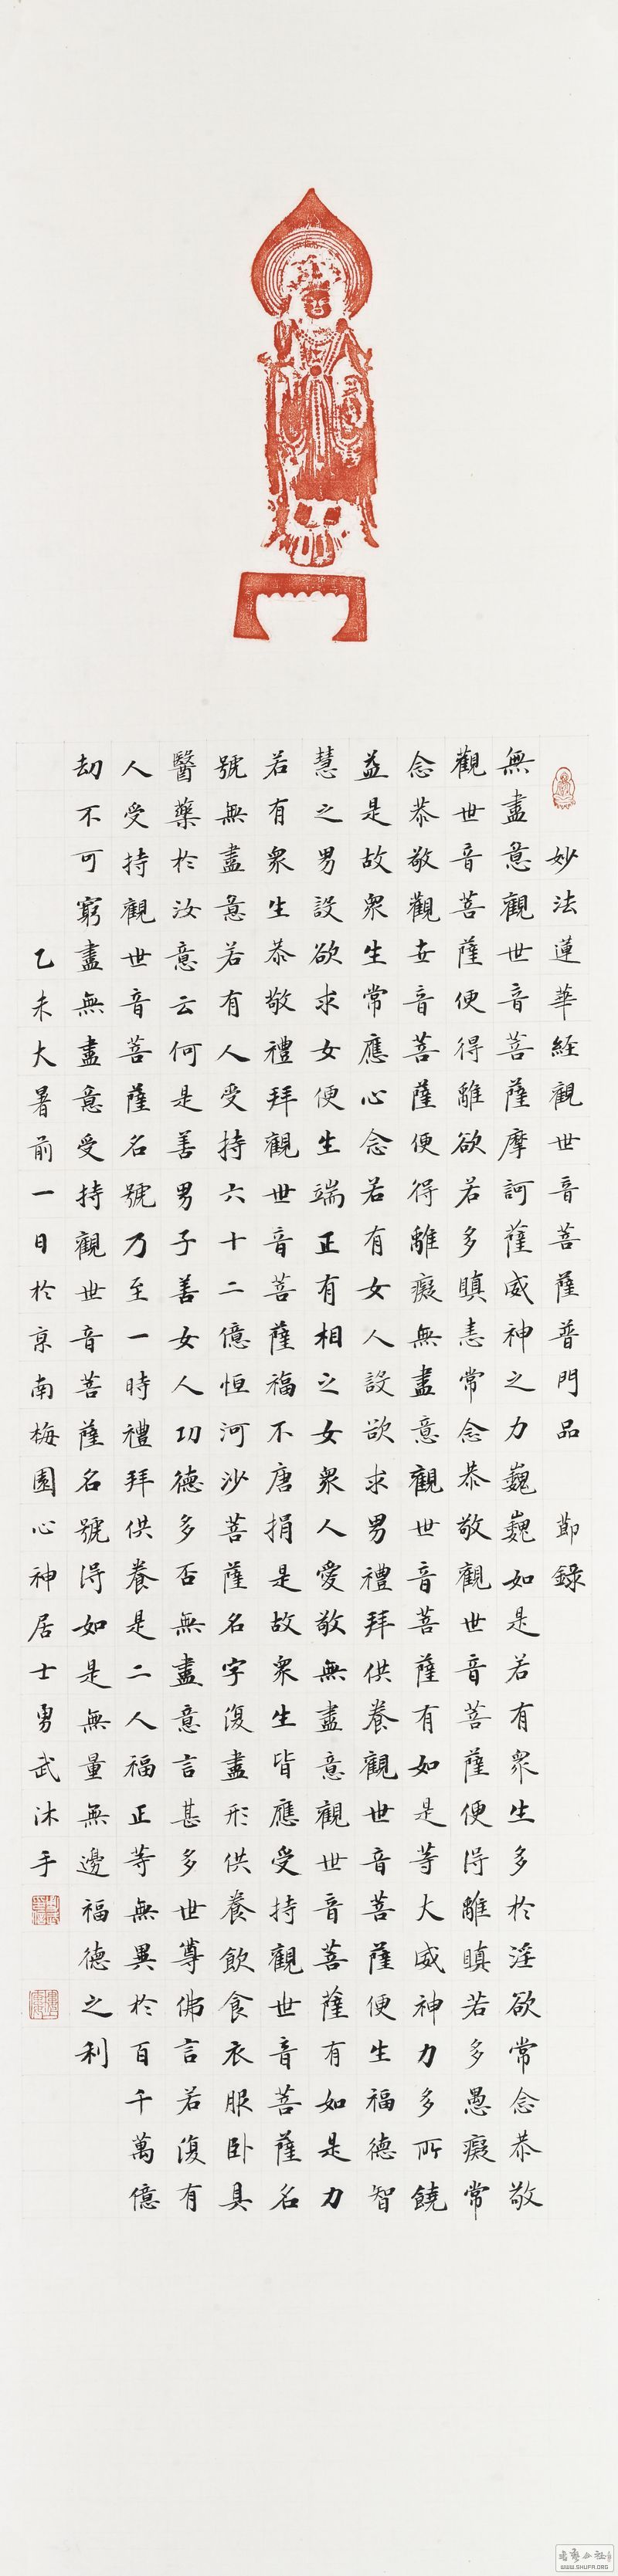 妙法蓮華経觀世音菩薩普門品 節錄
無盡意觀世音菩薩摩訶薩威神之力巍巍如是若有衆生多於淫欲常念恭敬
觀世音菩薩便得離欲若多瞋恚常念恭敬觀世音菩薩便得離瞋若多愚癡常
念恭敬觀世音菩薩便得離癡無盡意觀世音菩薩有如是等大威神力多所饒
益是故衆生常應心念若有女人設欲求男禮拜供養觀世音菩薩便生福德智
慧之男設欲求女便生端正有相之女衆人愛敬無盡意觀世音菩薩有如是力
若有衆生恭敬禮拜觀世音菩薩福不唐捐是故衆生皆應受持觀世音菩薩名
號無盡意若有人受持六十二億恒河沙菩薩名字復盡形供養飲食衣服卧具
醫藥於汝意云何是善男子善女人功德多否無盡意言甚多世尊佛言若復有
人受持觀世音菩薩名號乃至一時禮拜供養是二人福正等無異於百千萬億
劫不可窮盡無盡意受持觀世音菩薩名號得如是無量無邊福德之利
乙未大暑前一日於京南梅園心神居士勇武沐手
WWW.SHUFA.ORG